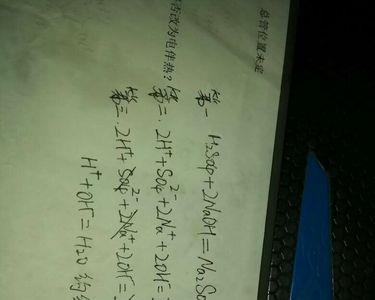 总管位置未定
否改为电伴热?
第一 H₂SO₄+2NaOH=Na₂SO
第二. 2H⁺+SO₄²⁻+2Na⁺+2OH⁻=
第三. 2H⁺+SO₄²⁻+2Na⁺+2OH⁻=
H⁺+OH⁻=H₂O